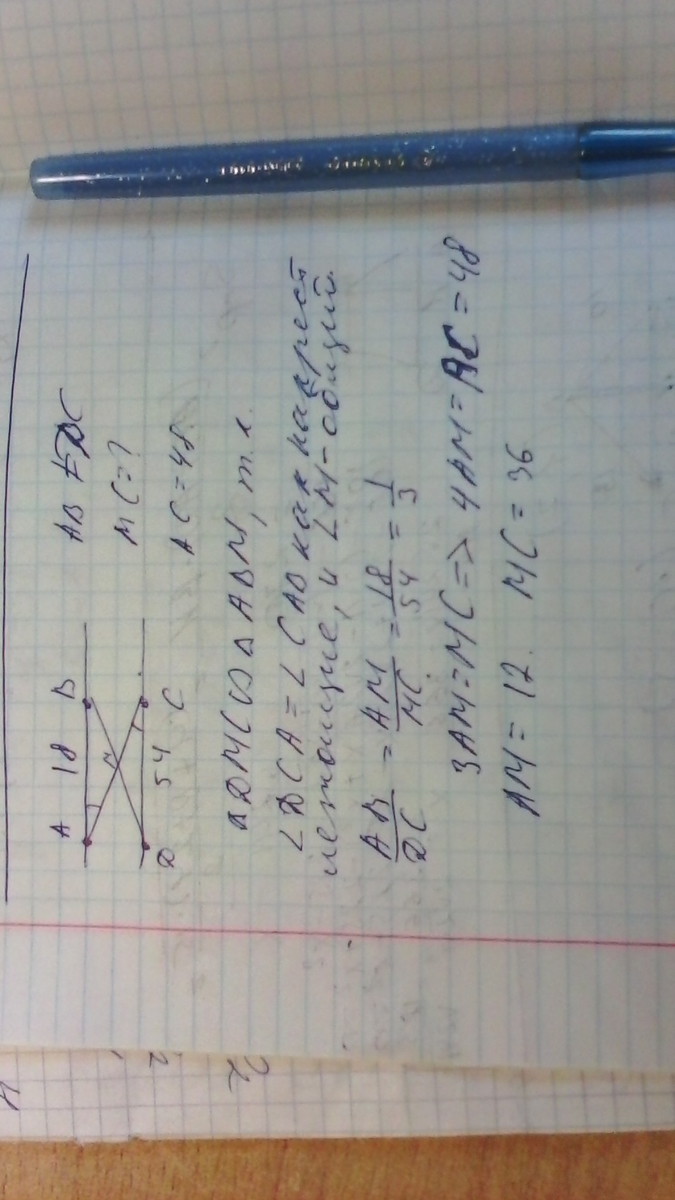 A 18 B
M
D 54 C
AB ∦ DC
MC = ?
AC = 48.
△DMC ∾ △ABM, т.к.
∠DCA = ∠CAB как накрест
лежащие, и ∠M - общий.
AB/DC = AM/MC = 18/54 = 1/3
3AM = MC => 4AM = AC = 48
AM = 12. MC = 36